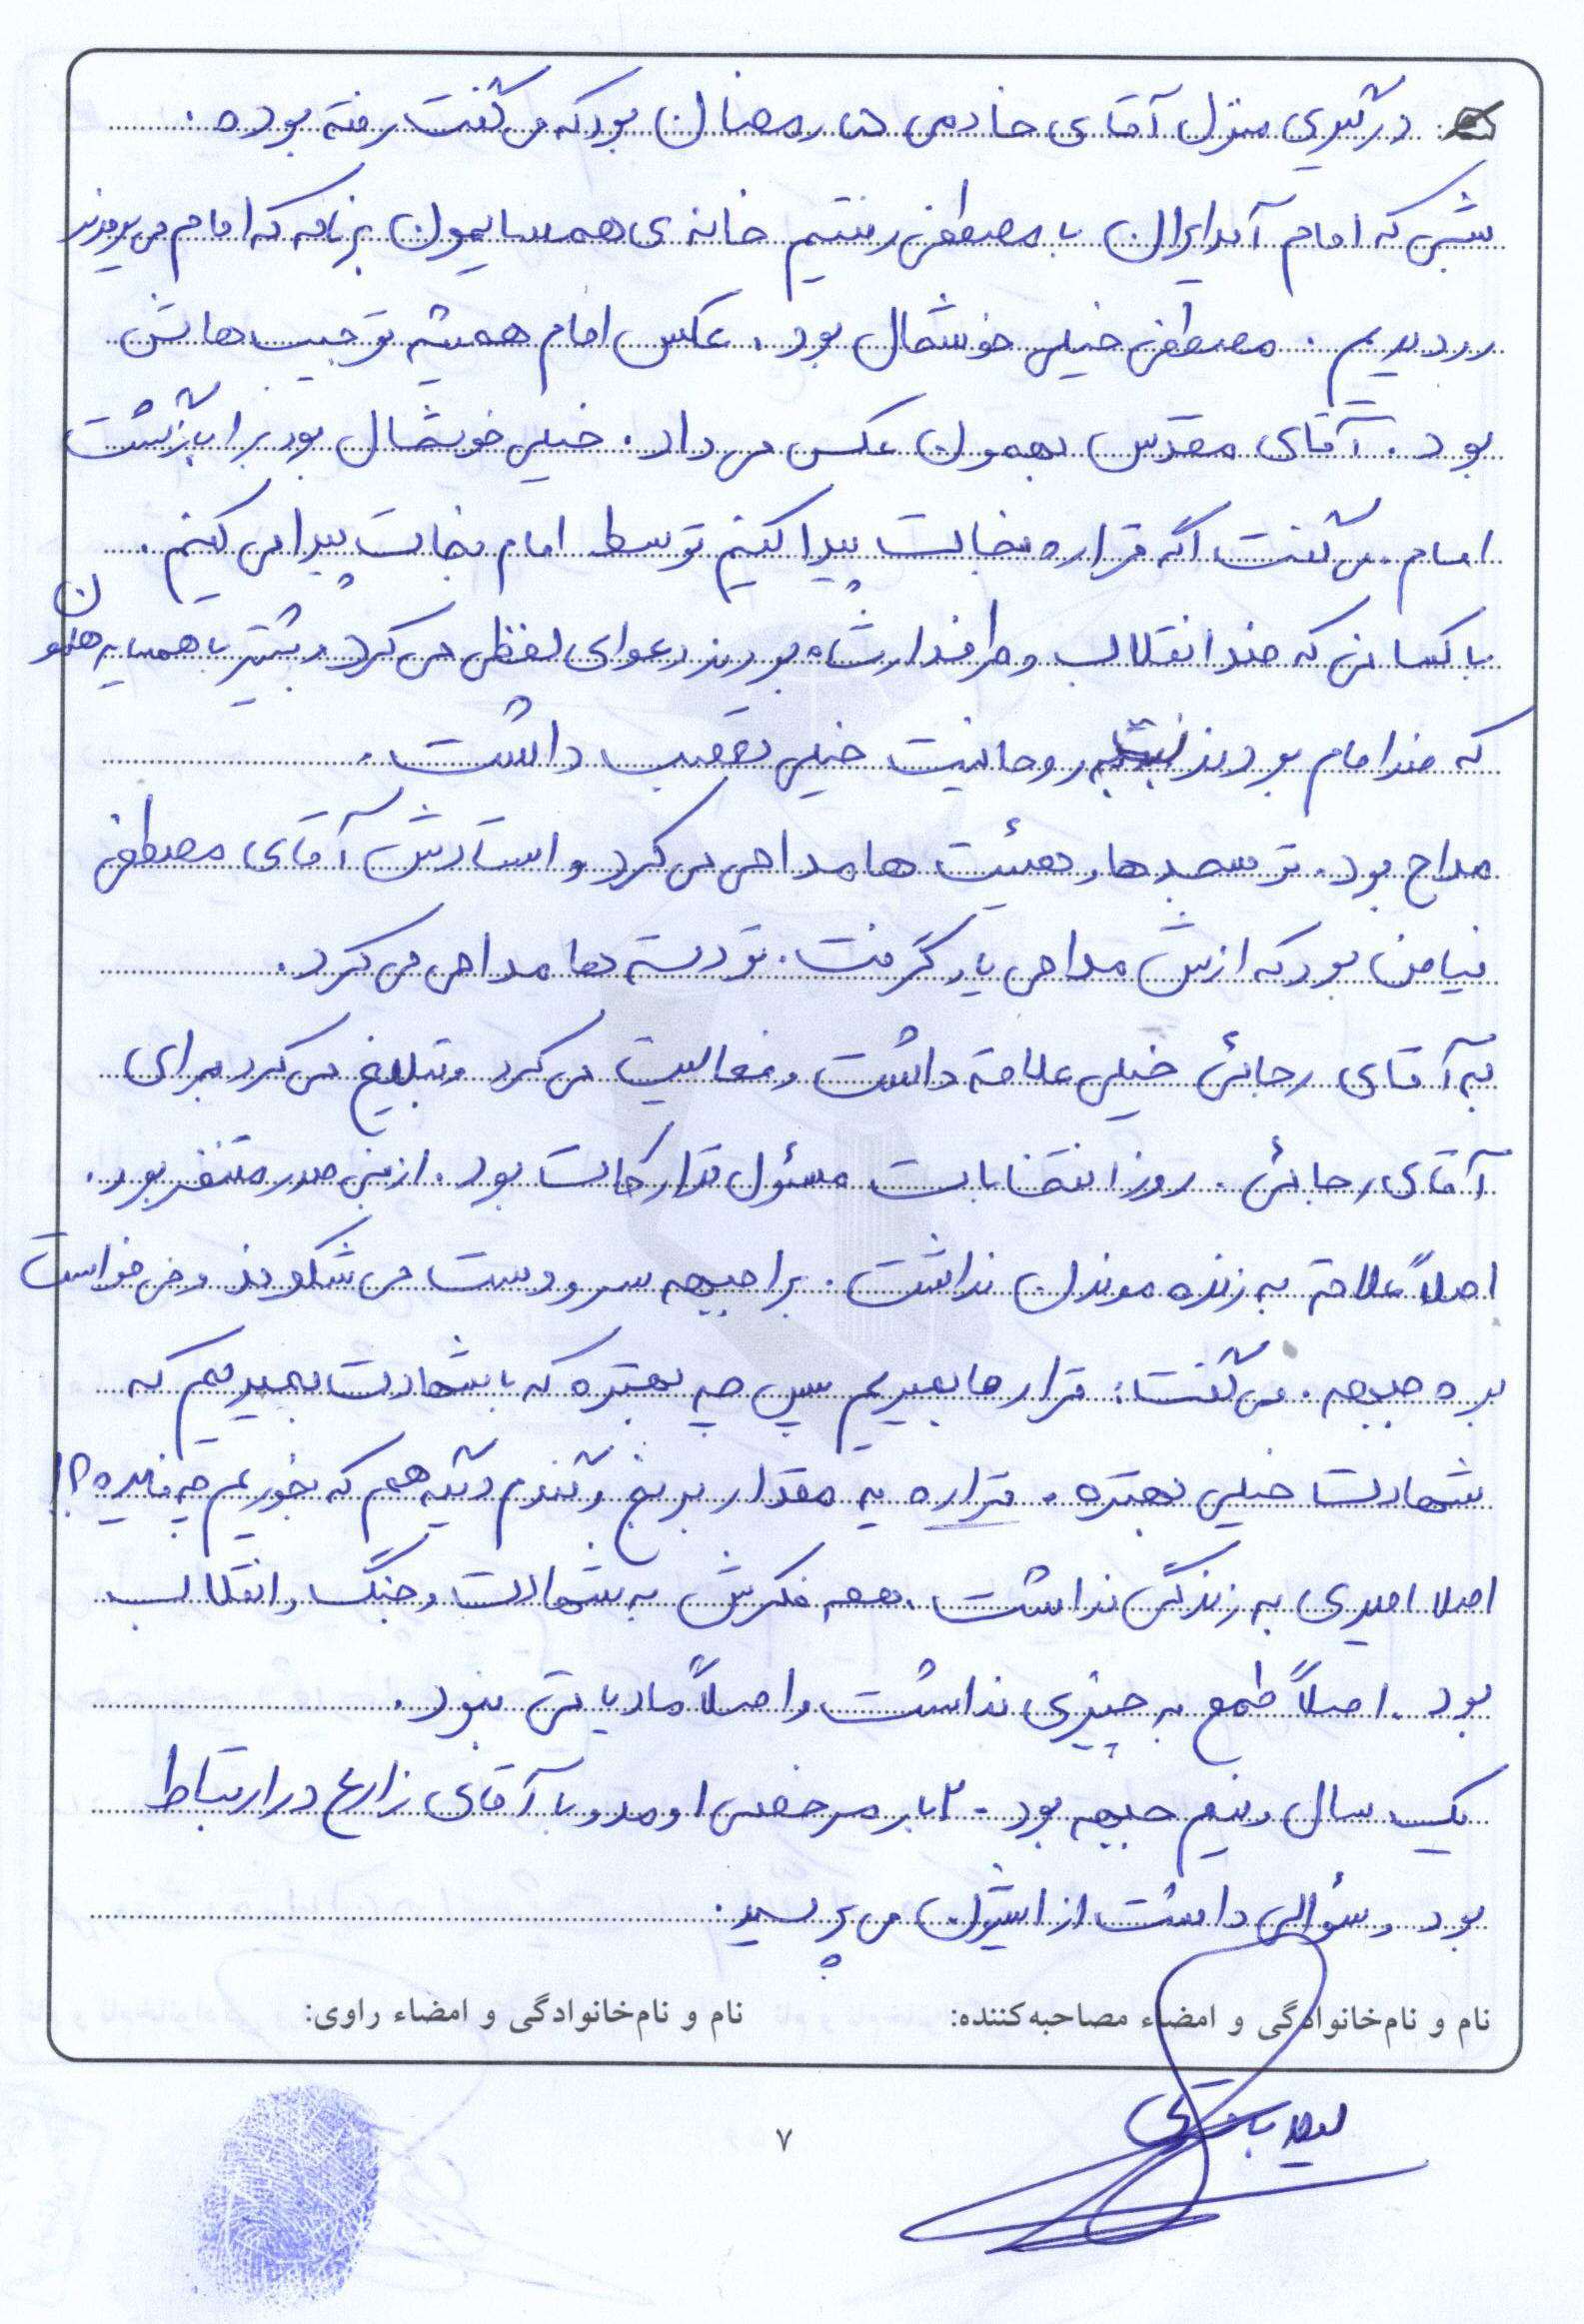 درگیری منزل آقای خادمی هنا رمضان بود که می گفت رفته بوده.
شبی که امام آمد ایران با مصطفی رفتیم خانه ی همسایمون برنامه که امام می یومدند
رو دیدیم. مصطفی خیلی خوشحال بود. عکس امام همیشه تو جیب هاش
بود. آقای مقدس بهمون عکس می داد. خیلی خوشحال بود برا بازگشت
امام. می گفت اگه قراره نجات پیدا کنیم توسط امام نجات پیدا می کنیم.
با کسانی که ضد انقلاب و طرافدار شاه بودند دعوای لفظی می کرد و بیشتر با همسایه هامون
که ضد امام بودند نسبت به روحانیت خیلی تعصب داشت.
مداح بود. تو مسجدها و هیئت ها مداحی می کرد و استادش آقای مصطفی
نیامن بود که ازش مداحی یاد گرفت. تو دسته ها مداحی می کرد.
به آقای رجائی خیلی علاقه داشت و فعالیت می کرد و تبلیغ می کرد برای
آقای رجائی. روز انتخابات مسئول تدارکات بود. از بنی صدر متنفر بود.
اصلاً علاقه به زنده موندن نداشت. برا جبهه سر و دست می شکوند و می خواست
بره جبهه. می گفت: قرار ما بمیریم پس چه بهتره که با شهادت بمیریم که
شهادت خیلی بهتره. قراره یه مقدار برنج و گندم دیگه هم که بخوریم چه فایده؟!
اصلا امیدی به زندگی نداشت. همه فکرش به شهادت و جنگ و انقلاب
بود. اصلاً طمع به چیزی نداشت و اصلاً مادیاتی نبود.
یک سال و نیم جبهه بود. ۲ بار مرخصی اومد و با آقای زارع در ارتباط
بود و سؤالی داشت از ایشون می پرسید.
نام و نام‌خانوادگی و امضاء مصاحبه‌کننده: نام و نام‌خانوادگی و امضاء راوی:
۷